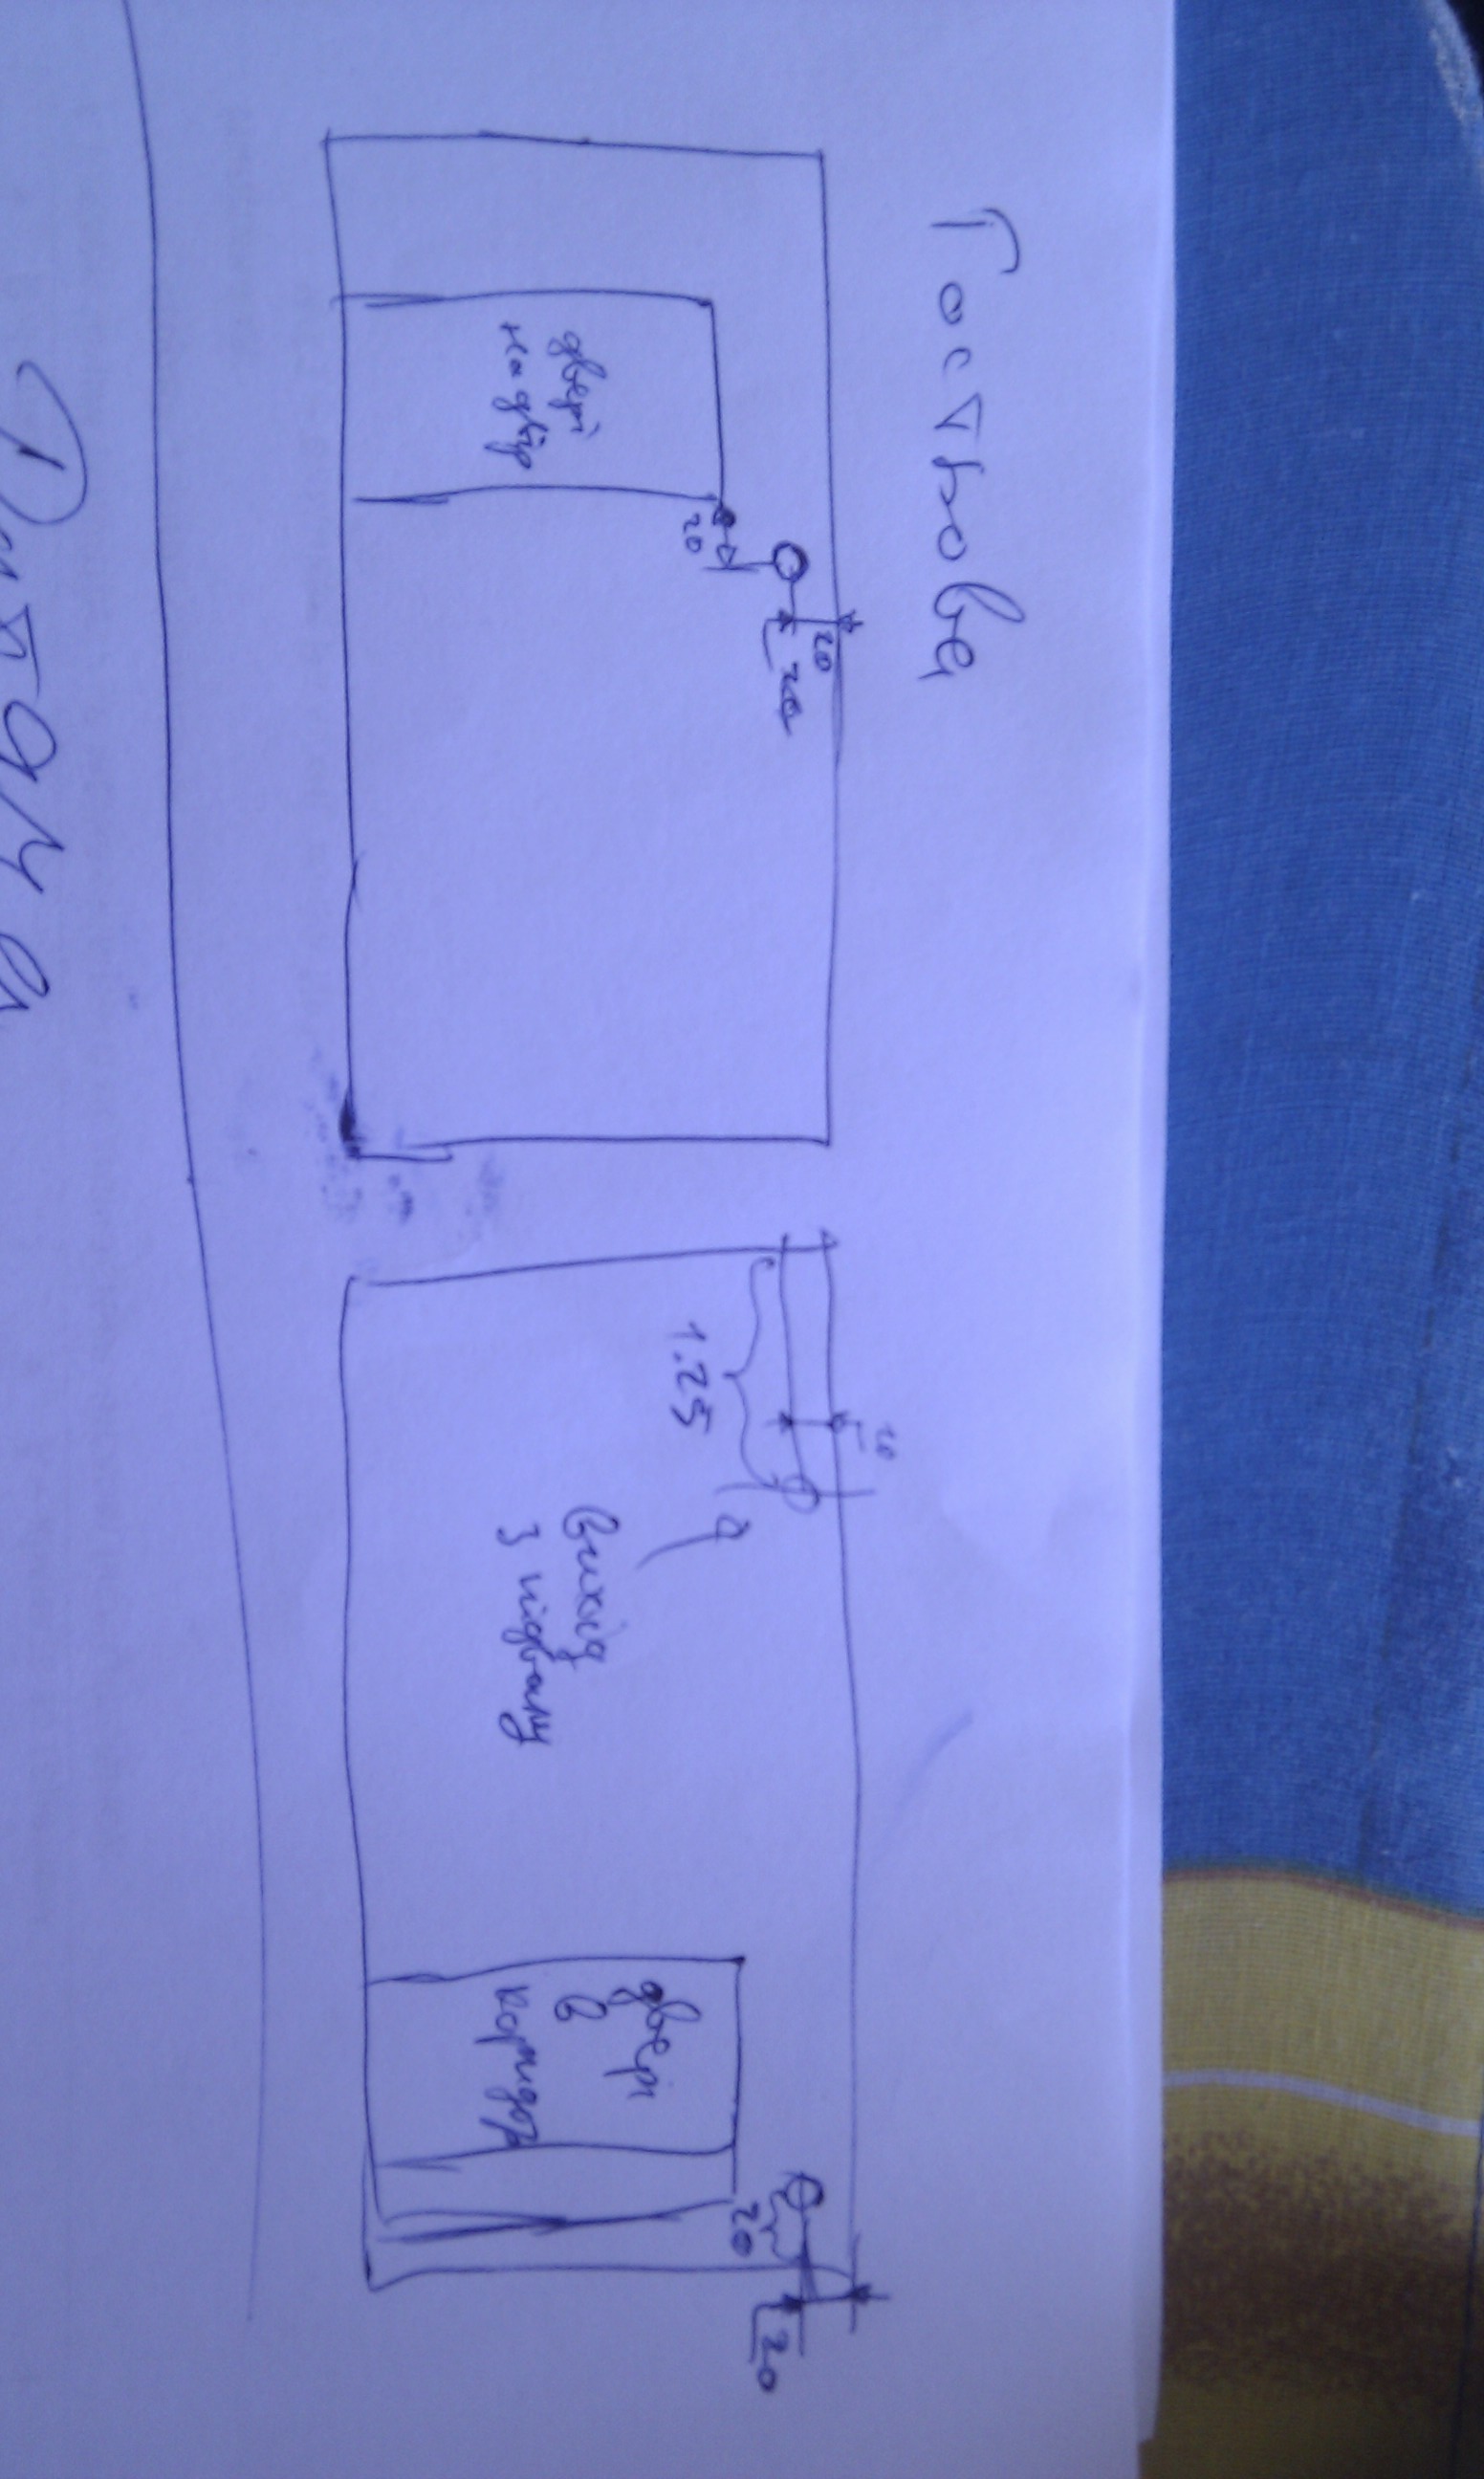 Гостьова
двері
на двір
20
20
20
20
1.25
вихід
з підвалу
двері
в
коридор
20
20
Дитяча